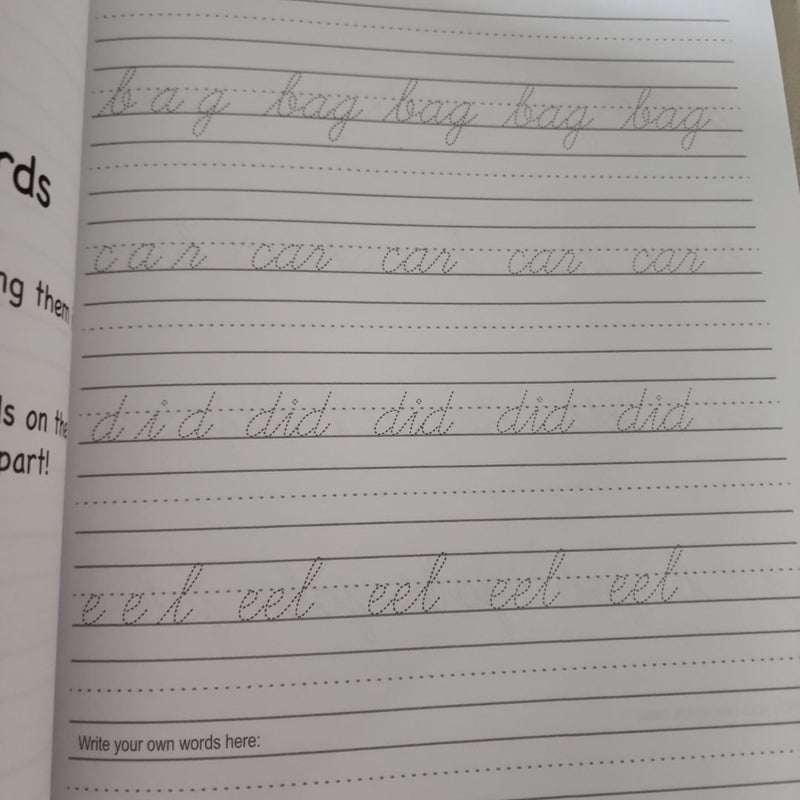 rds
ng them
ls on the
part!
b a g bag bag bag bag
c a r car car car car
d i d did did did did
e e l eel eel eel eel
Write your own words here: